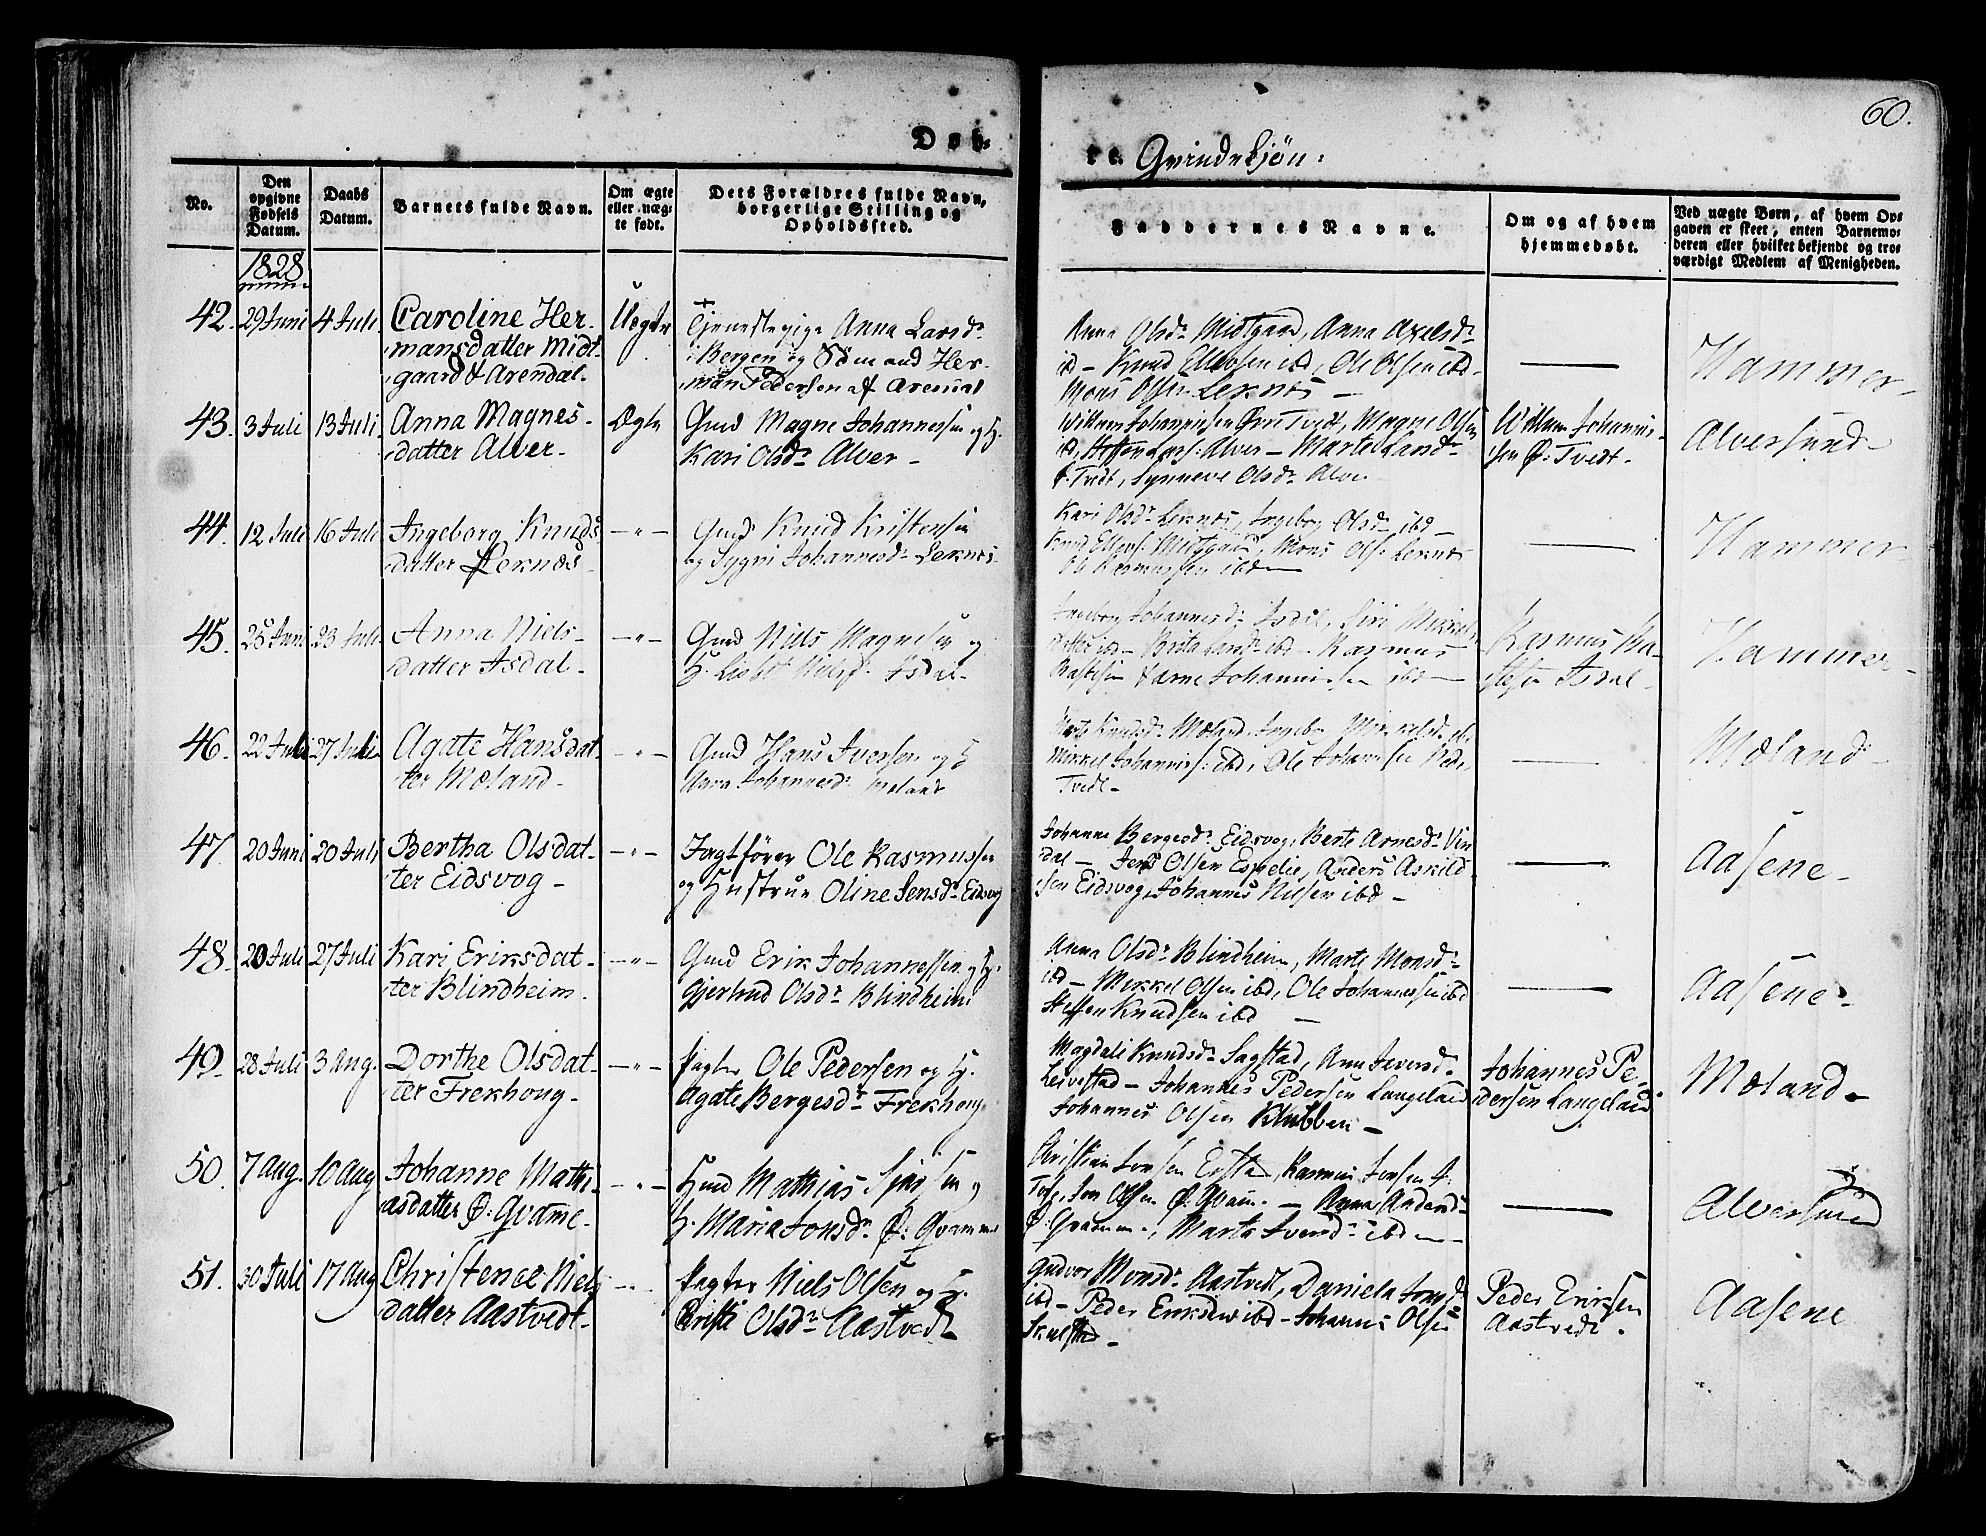 60.
Døb-
te. Qvindekjøn:
No.
Den
opgivne
Fødsels
Datum.
Daabs
Datum.
Barnets fulde Navn.
Om ægte
eller uæg-
te født.
Dets Forældres fulde Navn,
borgerlige Stilling og
Opholdssted.
Faddernes Navne.
Om og af hvem
hjemmedøbt.
Ved uægte Børn, af hvem Op-
gaven er skeet, enten Barnemo-
deren eller hvilket bekjendt og tro-
værdigt Medlem af Menigheden.
1828
42. 29 Juni 4 Juli
Caroline Her-
mansdatter Midt-
gaard & Arendal.
Uægte
Tjenestepige Anna Larsdr
i Bergen og Sömand Her-
man Pedersen af Arendal
Anna Olsdr Midtgaard, Anna Axelsdr
ibd - Knud Ellevsen ibd, Ole Olsen ibd
Mons Olsen Leknes -
Hammer
43. 3 Juli 13 Juli
Anna Magnes-
datter Alver-
Ægte
Gmd Magne Johannessen og H.
Kari Olsdr Alver -
Willum Johannessen Tvedt, Magne Olsen
ibd, Lars: Alver - Marte Larsdr
Tvedt, Synneve Olsdr Alver
Willum Johannes-
sen Ø: Tvedt.
Alversund
44. 12 Juli 16 Juli
Ingeborg Knuds
datter Leknes
Gmd Knud Kristensen
og Sygni Johannesdr Leknes.
Kari Olsdr Leknes, Ingebor Olsdr ibd -
Knud Ellevs: Midtgaard, Mons Ols: Leknes
Ole Rasmussen ibdm
Hammer
45. 25 Juni 23 Juli
Anna Niels-
datter Isdal-
Gmd Niels Magnesen og
H. Isdal-
Ingeborg Johannesdr Isdal, Siri Mikkels
datter ibd - Brita Larsdr ibd - Rasmus
Arne Johannessen ibd
Rasmus
Isdal
Hammer
46. 22 Juli 27 Juli
Agate Hansdat-
ter Mæland-
Gmd Hans Iversen og H
Johannesdr Mæland
Knudsdr Mæland,
Mikkel Johanness: ibd, Ole Johannesen Nede
Tvedt-
Mæland
47. 20 Juni 20 Juli
Bertha Olsdat-
ter Eidsvog -
Jagtförer Ole Rasmussen
og Hustrue Oline Jensdr Eidsvog
Johanne Bergesdr Eidsvog, Berte Arnesdr Vin
dal - Jens Olsen Espelie, Anders Askild-
sen Eidsvog, Johannes Nilsen ibd -
Aasene-
48. 20 Juli 27 Juli
Kari Eriksdat-
ter Blindheim.
Gmd Erik Johannessen og H.
Gjertrud Olsdr Blindheim
Anna Olsdr Blindheim, Marte Monsdr
ibd - Mikkel Olsen ibd, Ole Johannessen ibd
Steffen Knudsen ibd -
Aasene-
49. 28 Juli 3 Aug.
Dorthe Olsdat-
ter Frekhoug-
Pagter Ole Pedersen og H.
Agate Bergesdr Frekhoug
Magdali Knudsdr Sagstad, Anne Iversdr
Leivestad - Johannes Pedersen Langeland
Johannes Olsen Klubben -
Johannes Pe-
dersen Langeland
Mæland-
50. 7 Aug. 10 Aug
Johanne Mathi-
asdatter Ø: Qvamme-
Hmd Mathias og
H. Maria Jonsdr Ø: Qvamme
Christian Erstad, Rasmus
Jon Olsen Ø: Qvam. - Anna Andersdr
Ø: Qvamm, Marta Iversdr ibd -
Alversund
51. 30 Juli 17 Aug
Christence Niels
datter Aastvedt-
Pagter Niels Olsen og H.
Kristi Olsdr Aastvedt
Gudvor Monsdr Aastvedt, Daniela Jonsd
ibd - Peder Eriksen ibd - Johannes Olsen
Peder Eriksen
Aastvedt.
Aasene